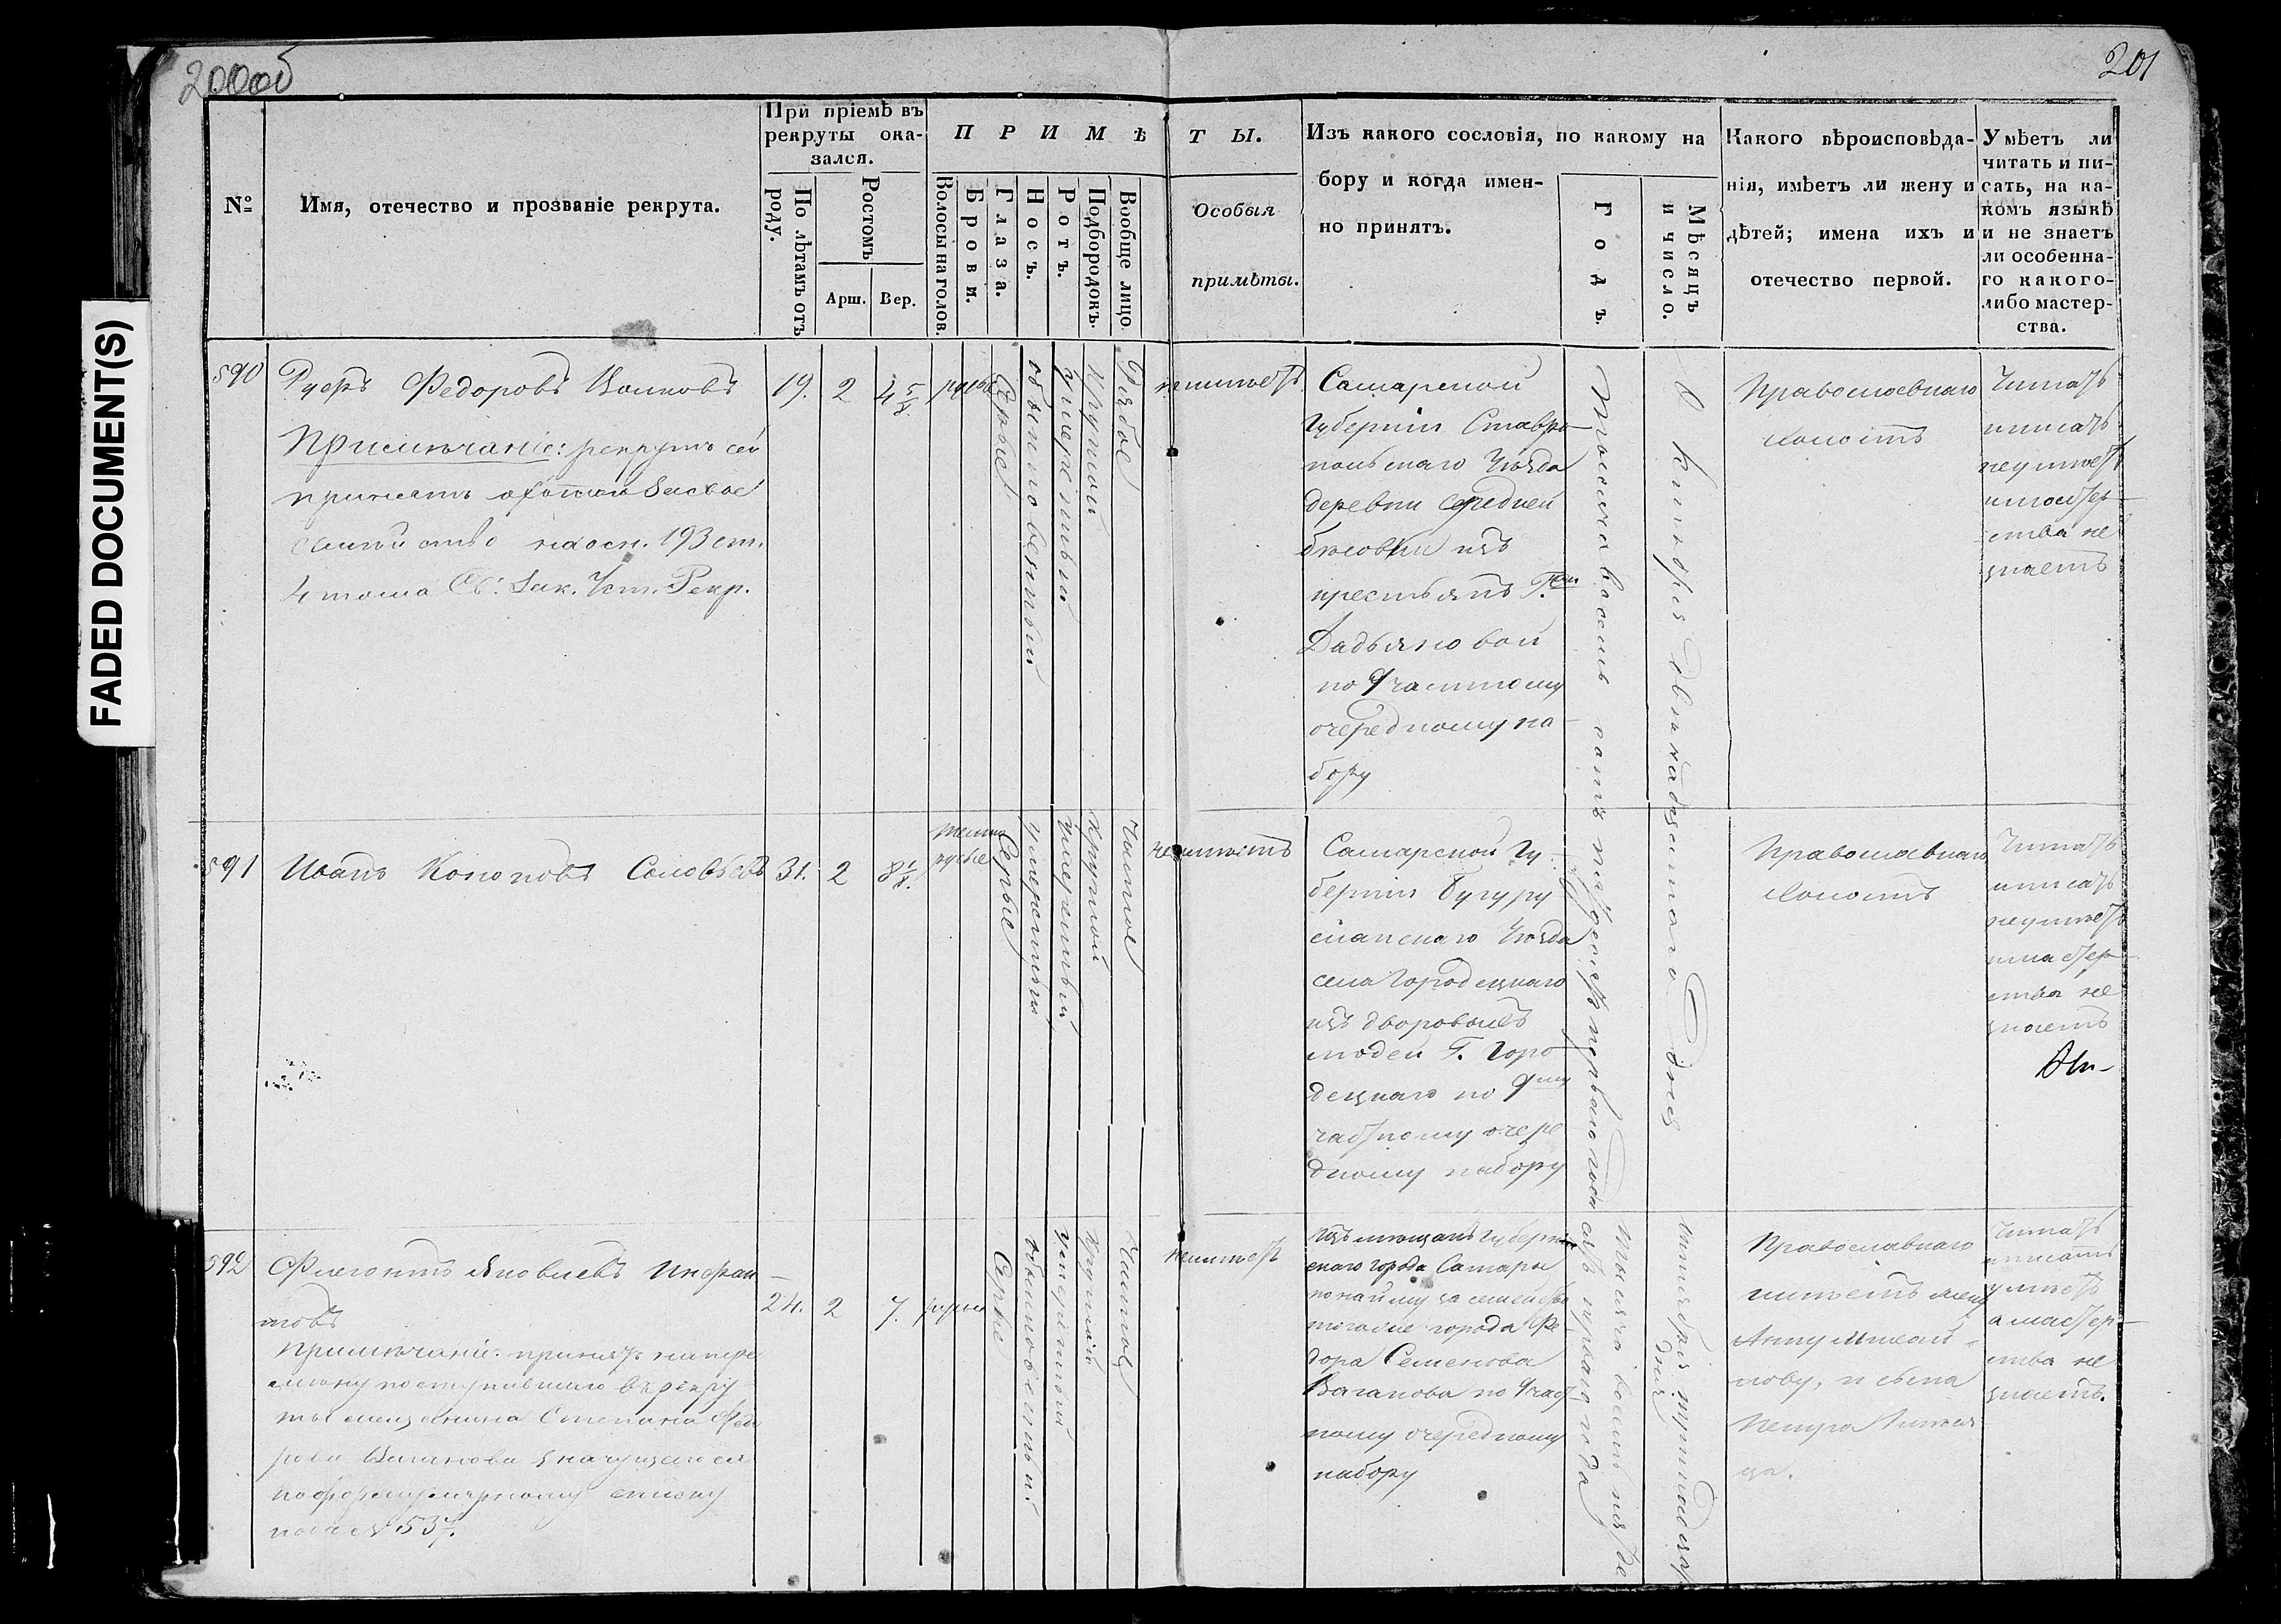 200об
201
FADED DOCUMENT(S)
№
Имя, отечество и прозваніе рекрута.
При пріемѣ въ
рекруты ока-
зался.
По лѣтамъ отъ
роду.
Ростомъ
Арш.
Вер.
ПРИМѢТЫ.
Волосы на голов.
Брови.
Глаза.
Носъ.
Ротъ.
Подбородокъ.
Вообще лицо.
Особыя
примѣты.
Изъ какого сословія, по какому на
бору и когда имен-
но принятъ.
Годъ.
Мѣсяцъ
и число.
Какого вѣроисповѣда-
нія, имѣетъ ли жену и
дѣтей; имена ихъ и
отечество первой.
Умѣетъ ли
читать и пи-
сать, на ка-
комъ языкѣ
и не знаетъ
ли особенна-
го какого-
либо мастер-
ства.
590
Федоровъ
Примѣчаніе: рекрутъ сей
принятъ охотою за свое
семейство на осн. 193 ст.
4 тома Св: Зак. Уст. Рекр.
19.
2
4 5/8.
Серые
обыкновенный
умеренный
круглой
Рябое
неимѣетъ
Самарской
Губерніи Ставро-
польскаго Уѣзда
деревни Средней
изъ
крестьянъ Г.
Дадьяновой
по 9 частному
очередному на-
бору
Тысяча восемь сотъ пятьдесятъ перваго года
Октября двенадцатаго дня
Православнаго
холостъ
Читать
иписать
неумѣетъ
имастер-
ства не
знаетъ
591
Иванъ Кононовъ Соловьевъ
31.
2
8 1/8.
темно
русые
Серые
умеренный
умеренный
круглой
Чистое
неимѣетъ
Самарской Гу-
берніи Бугуру
сланскаго Уѣзда
села Городецкаго
изъ дворовыхъ
людей Г. Горо
децкаго по 9му
частному очере
дному набору
Православнаго
холостъ
Читать
иписать
неумѣетъ
имастер-
ства не
знаетъ
592
Флегонтъ Яковлевъ
товъ
Примѣчаніе: принятъ на пере
мену поступившаго в рекру
ты мещанина Степана Федо
рова Ваганова значущагося
по формулярному списку
подъ № 537.
24.
2
7.
Серые
обыкновенный
умеренный
круглой
Чистое
неимѣетъ
Изъ мещанъ Губерн
скаго города Самары
по найму за семейство
тогоже города Фе
дора Семенова
Ваганова по 9 част-
ному очередному
набору
Тысяча восемь сотъ пятьде
сятъ перваго года
дня
Православнаго
имѣетъ жену
Анну Михай-
лову, и сына
Петра
Читать
иписать
умѣетъ
а мастер-
ства не
знаетъ.